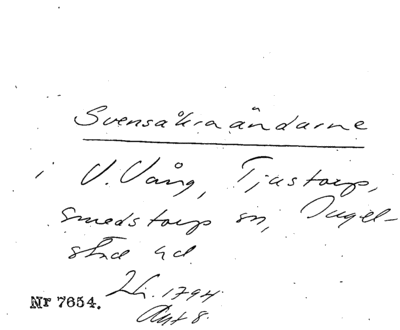 Svensåkraändarne
i V. Vång, Tjustorp,
Smedstorp sn, Ingel-
stad hd.
Nr 7654.
1794
Akt 8.